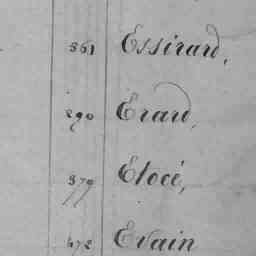 361 Essirard,
290 Erard,
379 Elocé,
472 Evain